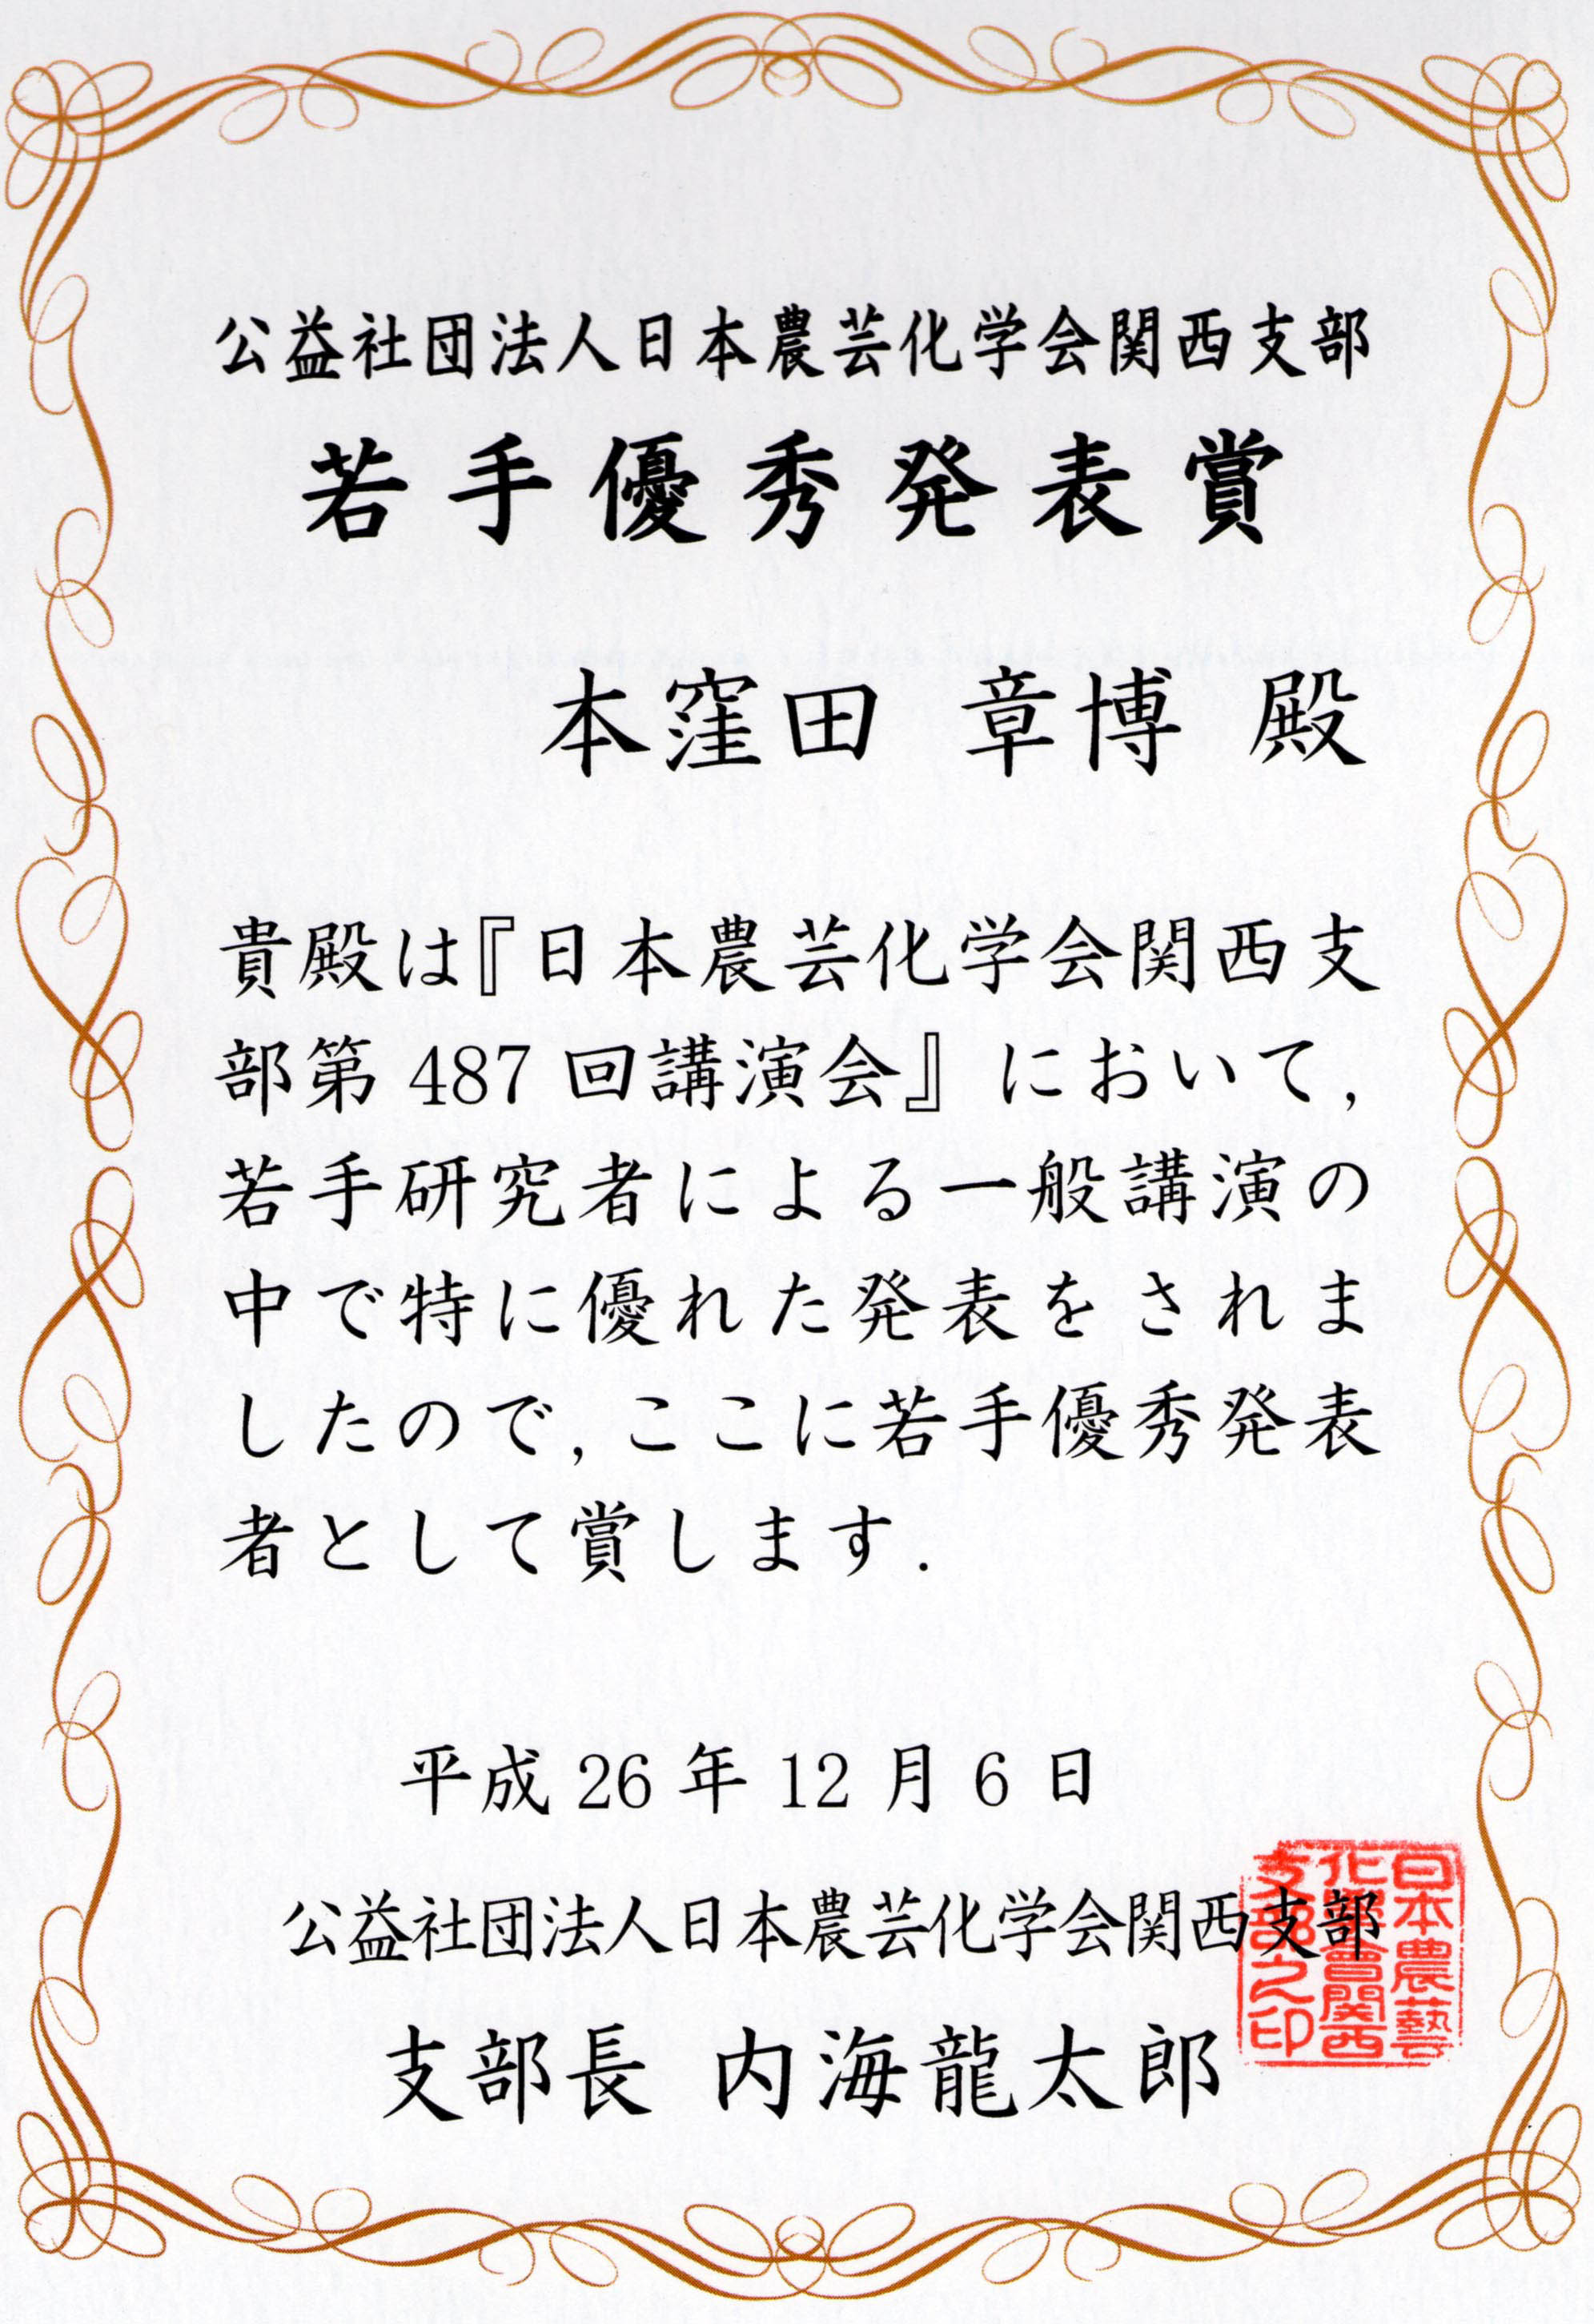 公益社団法人日本農芸化学会関西支部
若手優秀発表賞
本窪田 章博 殿
貴殿は『日本農芸化学会関西支
部第 487 回講演会』において,
若手研究者による一般講演の
中で特に優れた発表をされま
したので, ここに若手優秀発表
者として賞します.
平成 26 年 12 月 6 日
公益社団法人日本農芸化学会関西支部
支部長 内海龍太郎
日本農藝
化學會関西
支部之印